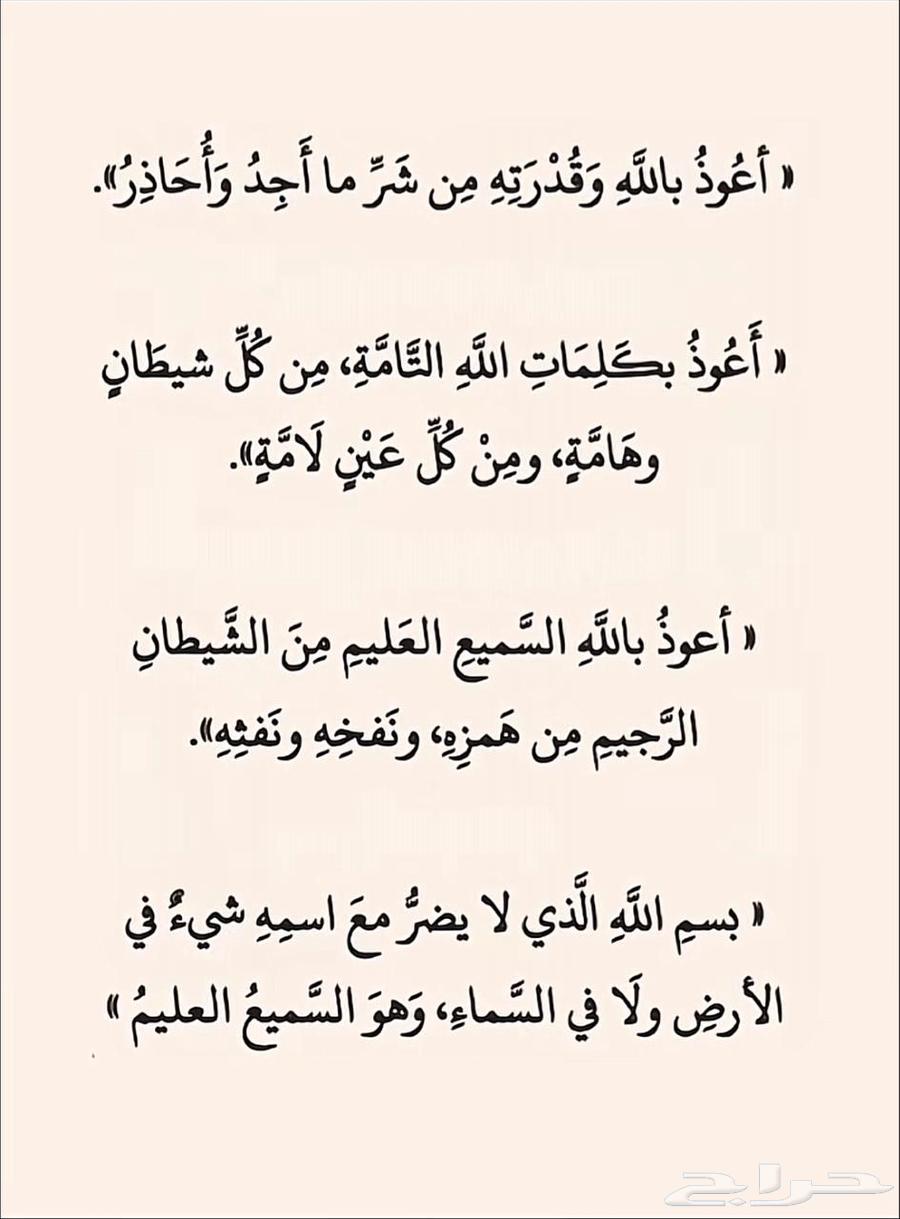 « أعُوذُ باللَّهِ وَقُدْرَتِهِ مِن شَرِّ ما أَجِدُ وَأُحَاذِرُ».
« أَعُوذُ بكَلِمَاتِ اللَّهِ التَّامَّةِ، مِن كُلِّ شيطَانٍ
وهَامَّةٍ، ومِنْ كُلِّ عَيْنٍ لَامَّةٍ».
« أعوذُ باللَّهِ السَّميعِ العَليمِ مِنَ الشَّيطانِ
الرَّجيمِ مِن هَمزِهِ، ونَفخِهِ ونَفثِهِ».
« بسمِ اللَّهِ الَّذي لا يضرُّ معَ اسمِهِ شيءٌ في
الأرضِ ولَا في السَّماءِ، وَهوَ السَّميعُ العليمُ »
حراج